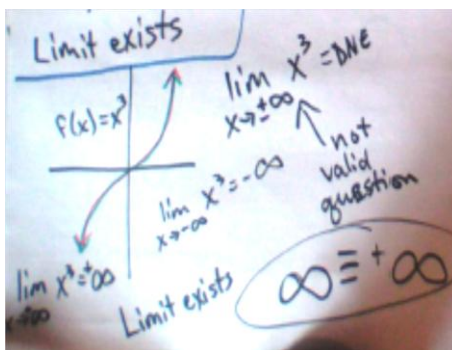 Limit exists
f(x)=x³
lim x³ = DNE
x→±∞
not
valid
question
lim x³ = -∞
x→-∞
lim x³ = +∞
x→+∞
Limit exists
∞ ≡ +∞